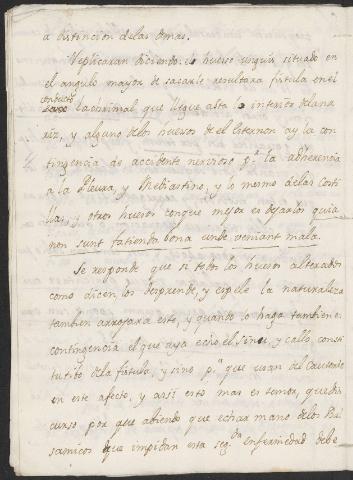 a distincion delas demas.
Replicaran diciendo. el hueso unguis situado en
el angulo mayor de sacarle resultara fistula en el
conducto
lacrimal que llegue asta lo interior dela na
riz, y alguno delos huesos de el esternon ay la con
tingencia de accidente nervioso pr. la adherencia
a la Pleura, y Mediastino, y lo mesmo delas costi
llas, y otros huesos conque mejor es dejarlos quia
non sunt facienda bona unde veniant mala.
Se responde que si todos los huesos alterados
como dicen los desprende, y espele la naturaleza
tambien arrojara este, y quando lo haga tambien es
contingencia el que aya echo el sinus, y callo, consti
tutibo dela fistula, y sino pa. que usan del causento
en este afecto, y assi esto mas es temor, que dis
curso, por que abiendo que echar mano delos Bal
samicos que impidan esta segda. enfermedad debe